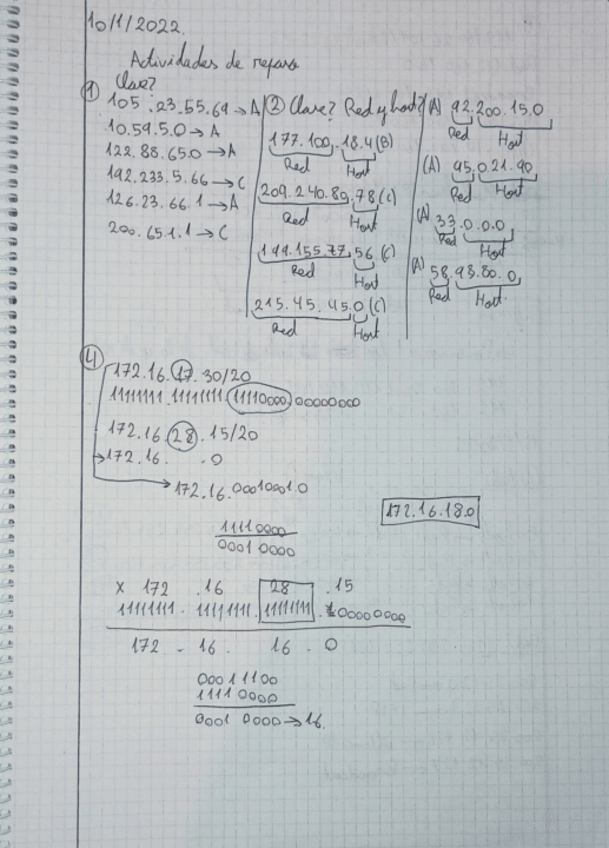 10/1/2022.
Actividades de repaso
① Clase?
105.23.55.69 → A
10.59.5.0 → A
122.88.65.0 → A
192.233.5.66 → C
126.23.66.1 → A
200.65.1.1 → C
② Clase? Red y host?
177.100.18.4 (B)
Red Host
209.240.80.78 (C)
Red Host
199.155.77.56 (C)
Red Host
215.45.45.0 (C)
Red Host
(A) 92.200.15.0
Red Host
(A) 95.0.21.90
Red Host
(A) 33.0.0.0
Red Host
(A) 58.98.80.0
Red Host.
④ 172.16.17.30/20
11111111.11111111.11110000.00000000
172.16.28.15/20
→172.16. .0
→172.16.00010001.0
172.16.18.0
11110000
00010000
x 172 .16 28 .15
11111111.11111111.11111111.10000000
172 - 16. 16 . 0
00011100
11110000
0001 0000 → 16.